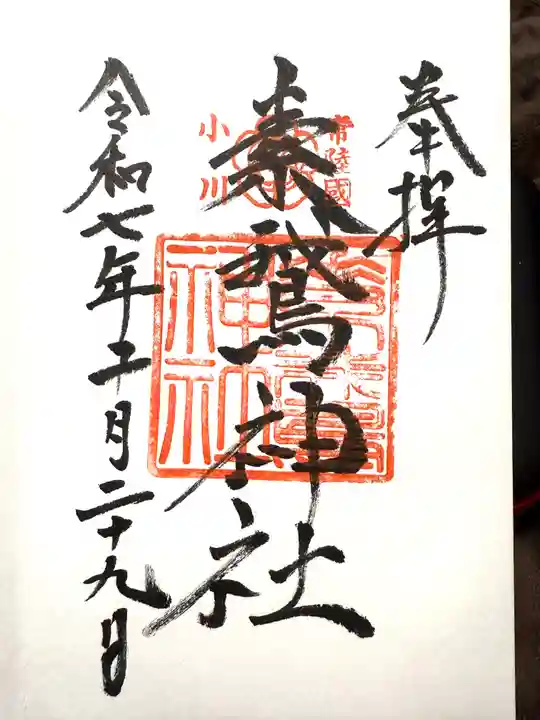 奉拝
常陸國
小川
素鵞神社
令和七年十二月二十九日